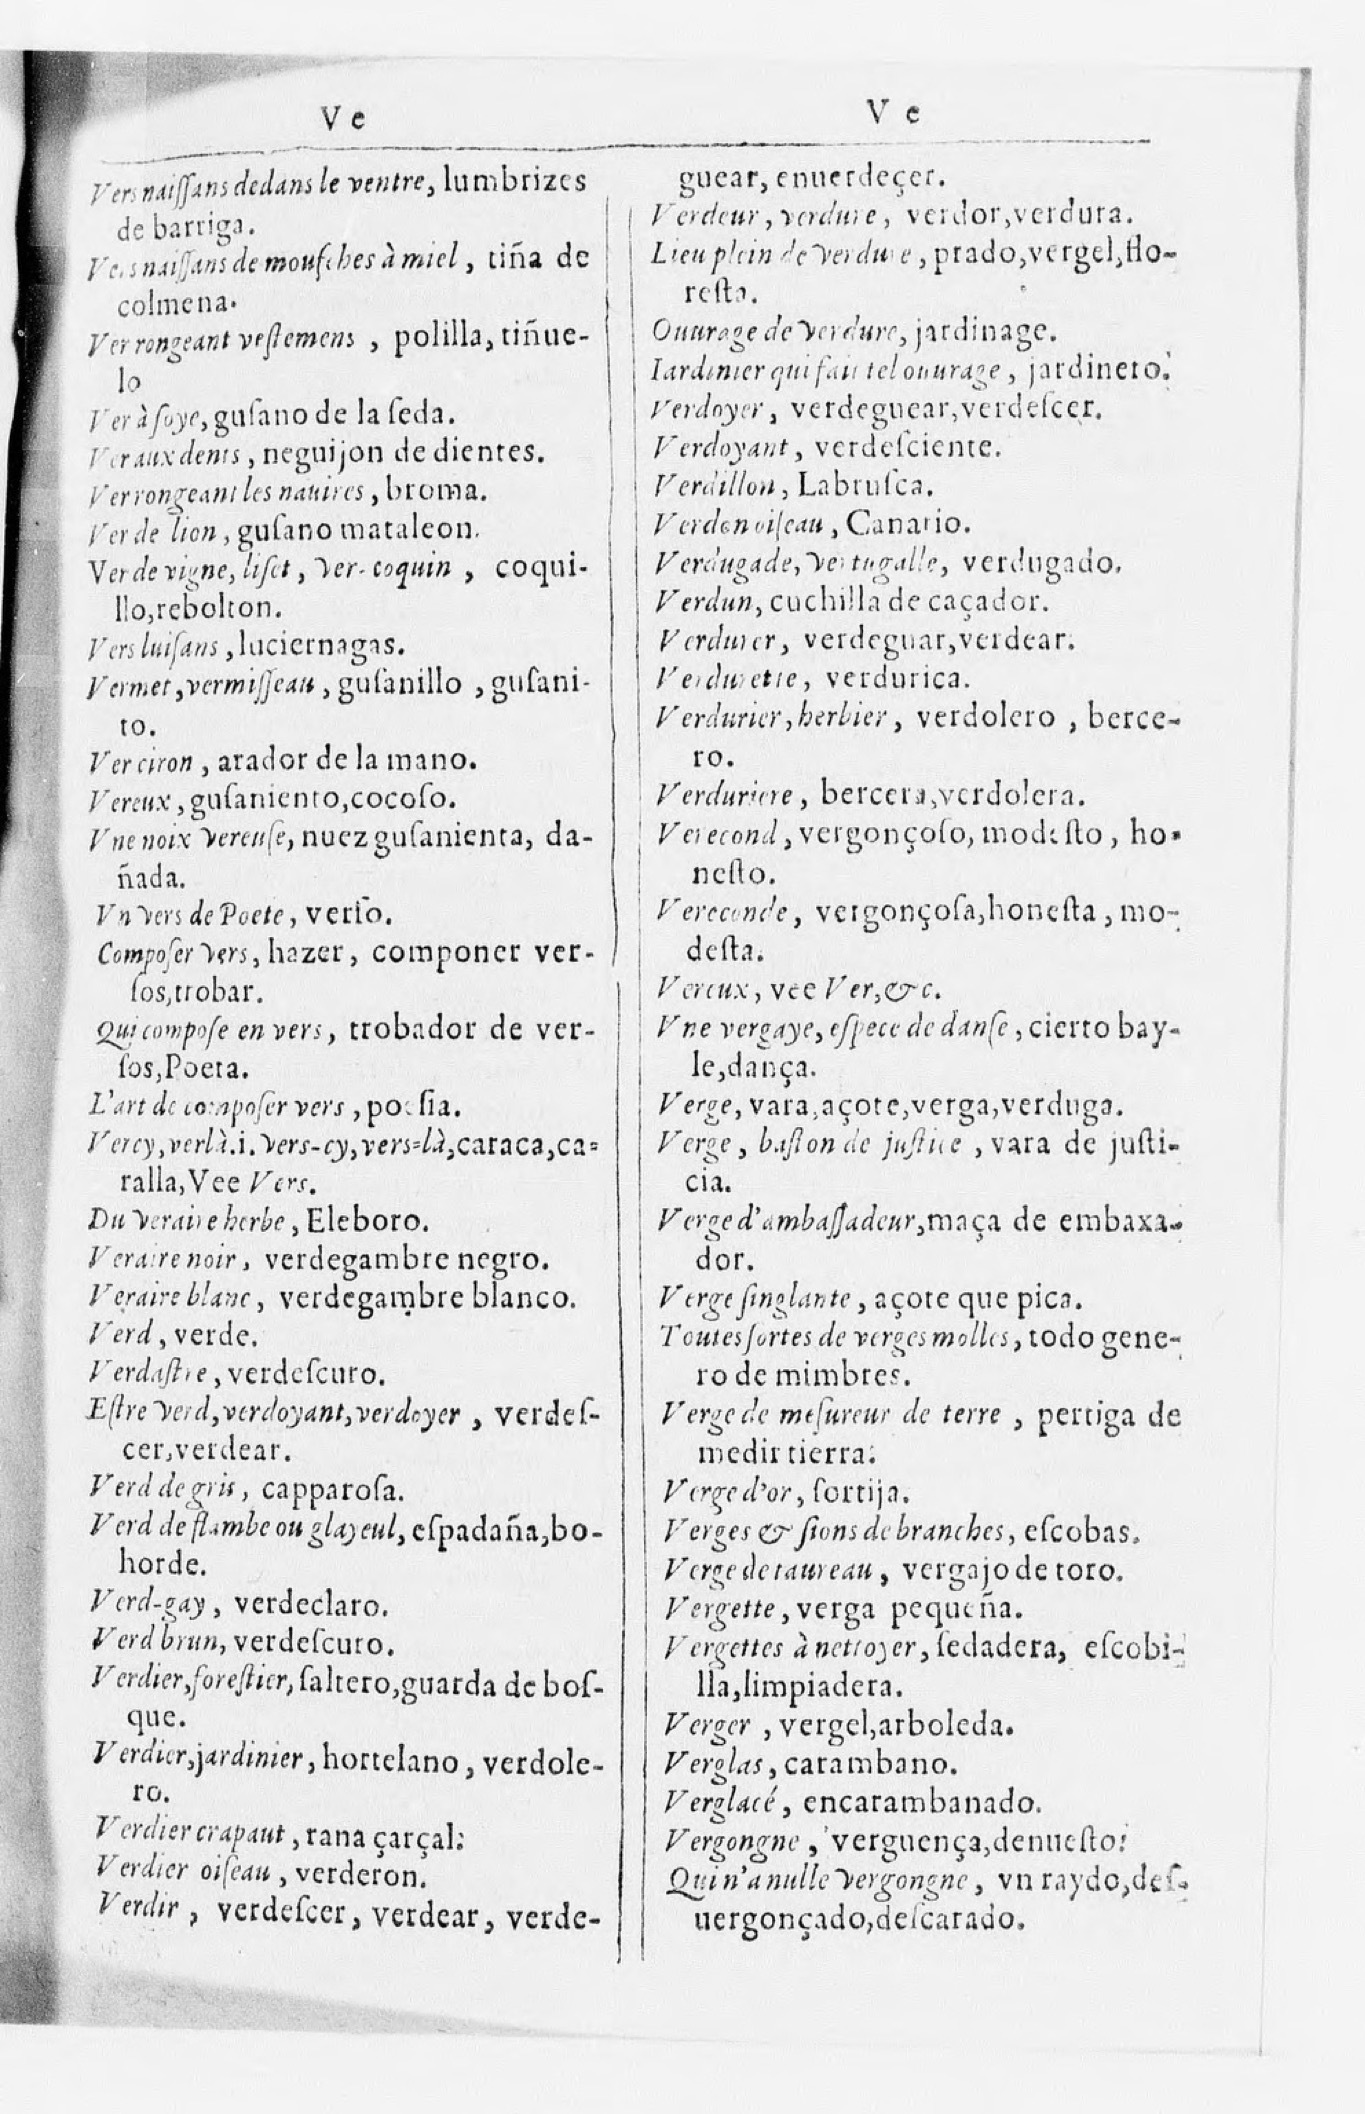 Ve
Vers naiſſans dedans le ventre, lumbrizes
de barriga.
Vers naiſſans de mouſches à miel, tiña de
colmena.
Ver rongeant veſtemens, polilla, tiñue-
lo
Ver à ſoye, guſano de la ſeda.
Ver aux dents, neguijon de dientes.
Ver rongeant les nauires, broma.
Ver de lion, guſano mataleon.
Ver de vigne, liſet, ver-coquin, coqui-
llo, rebolton.
Vers luiſans, luciernagas.
Vermet, vermiſſeau, guſanillo, guſani-
to.
Ver ciron, arador de la mano.
Vereux, guſaniento, cocoſo.
Vne noix vereuſe, nuez guſanienta, da-
ñada.
Vn vers de Poete, verſo.
Compoſer vers, hazer, componer ver-
ſos, trobar.
Qui compoſe en vers, trobador de ver-
ſos, Poeta.
L'art de compoſer vers, poeſia.
Vercy, verlà.i. vers-cy, vers-là, caraca, ca-
ralla, Vee Vers.
Du veraire herbe, Eleboro.
Veraire noir, verdegambre negro.
Veraire blanc, verdegambre blanco.
Verd, verde.
Verdaſtre, verdeſcuro.
Eſtre verd, verdoyant, verdoyer, verdeſ-
cer, verdear.
Verd de gris, capparoſa.
Verd de flambe ou glayeul, eſpadaña, bo-
horde.
Verd-gay, verdeclaro.
Verd brun, verdeſcuro.
Verdier, foreſtier, ſaltero, guarda de boſ-
que.
Verdier, jardinier, hortelano, verdole-
ro.
Verdier crapaut, rana çarçal:
Verdier oiſeau, verderon.
Verdir, verdeſcer, verdear, verde-
Ve
guear, enuerdeçer.
Verdeur, verdure, verdor, verdura.
Lieu plein de verdure, prado, vergel, flo-
reſta.
Ouurage de verdure, jardinage.
Iardinier qui fait tel ouurage, jardinero.
Verdoyer, verdeguear, verdeſcer.
Verdoyant, verdeſciente.
Verdillon, Labruſca.
Verdon oiſeau, Canario.
Verdugade, vertugalle, verdugado.
Verdun, cuchilla de caçador.
Verdurer, verdeguar, verdear.
Verdurette, verdurica.
Verdurier, herbier, verdolero, berce-
ro.
Verduriere, bercera, verdolera.
Verecond, vergonçoſo, modeſto, ho-
neſto.
Vereconde, vergonçoſa, honeſta, mo-
deſta.
Vereux, vee Ver, &c.
Vne vergaye, eſpece de danſe, cierto bay-
le, dança.
Verge, vara, açote, verga, verduga.
Verge, baſton de juſtice, vara de juſti-
cia.
Verge d'ambaſſadeur, maça de embaxa-
dor.
Verge ſinglante, açote que pica.
Toutes ſortes de verges molles, todo gene-
ro de mimbres.
Verge de meſureur de terre, pertiga de
medir tierra.
Verge d'or, ſortija.
Verges & ſions de branches, eſcobas.
Verge de taureau, vergajo de toro.
Vergette, verga pequeña.
Vergettes à nettoyer, ſedadera, eſcobi-
lla, limpiadera.
Verger, vergel, arboleda.
Verglas, carambano.
Verglacé, encarambanado.
Vergongne, verguença, denueſto:
Qui n'a nulle vergongne, vn raydo, deſ-
uergonçado, deſcarado.